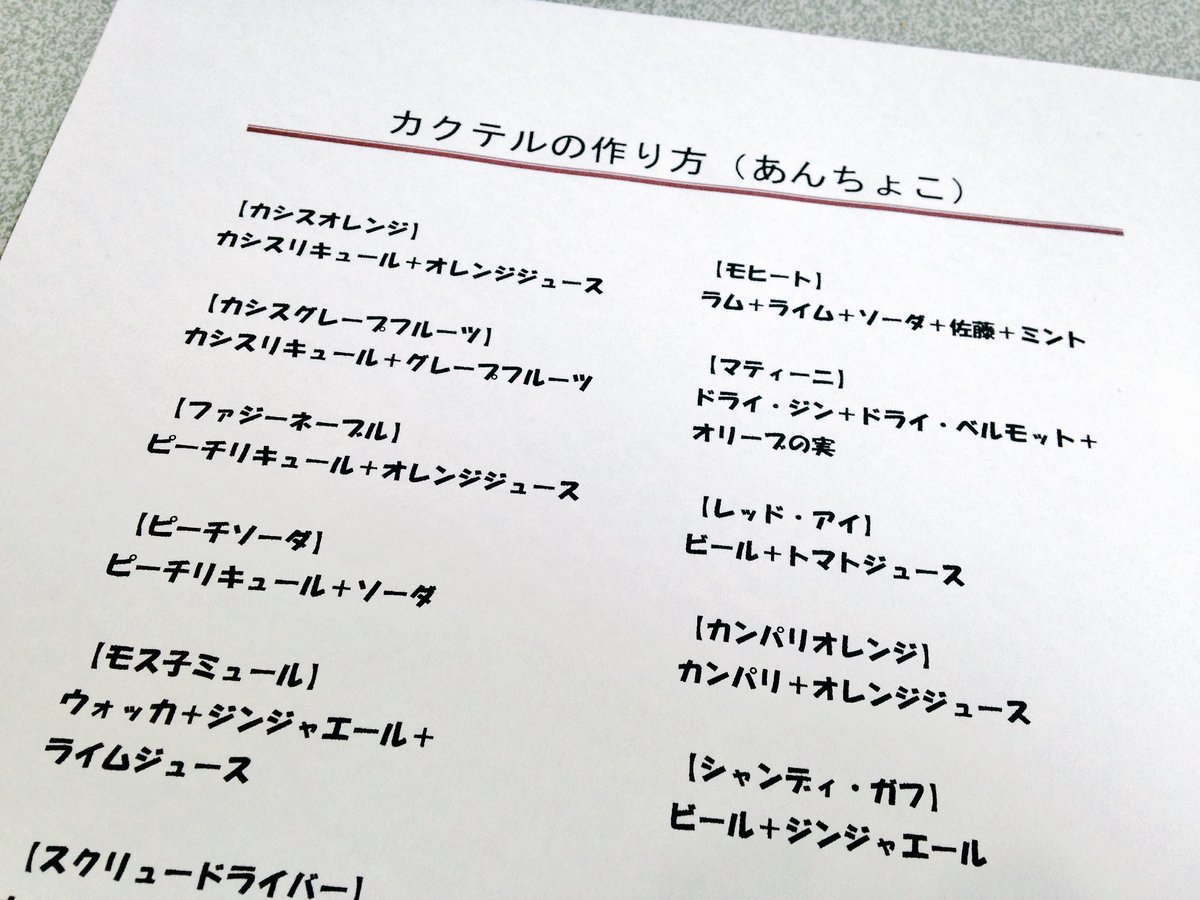 カクテルの作り方（あんちょこ）
【カシスオレンジ】
カシスリキュール＋オレンジジュース
【カシスグレープフルーツ】
カシスリキュール＋グレープフルーツ
【ファジーネーブル】
ピーチリキュール＋オレンジジュース
【ピーチソーダ】
ピーチリキュール＋ソーダ
【モス子ミュール】
ウォッカ＋ジンジャエール＋
ライムジュース
【スクリュードライバー】
【モヒート】
ラム＋ライム＋ソーダ＋佐藤＋ミント
【マティーニ】
ドライ・ジン＋ドライ・ベルモット＋
オリーブの実
【レッド・アイ】
ビール＋トマトジュース
【カンパリオレンジ】
カンパリ＋オレンジジュース
【シャンディ・ガフ】
ビール＋ジンジャエール